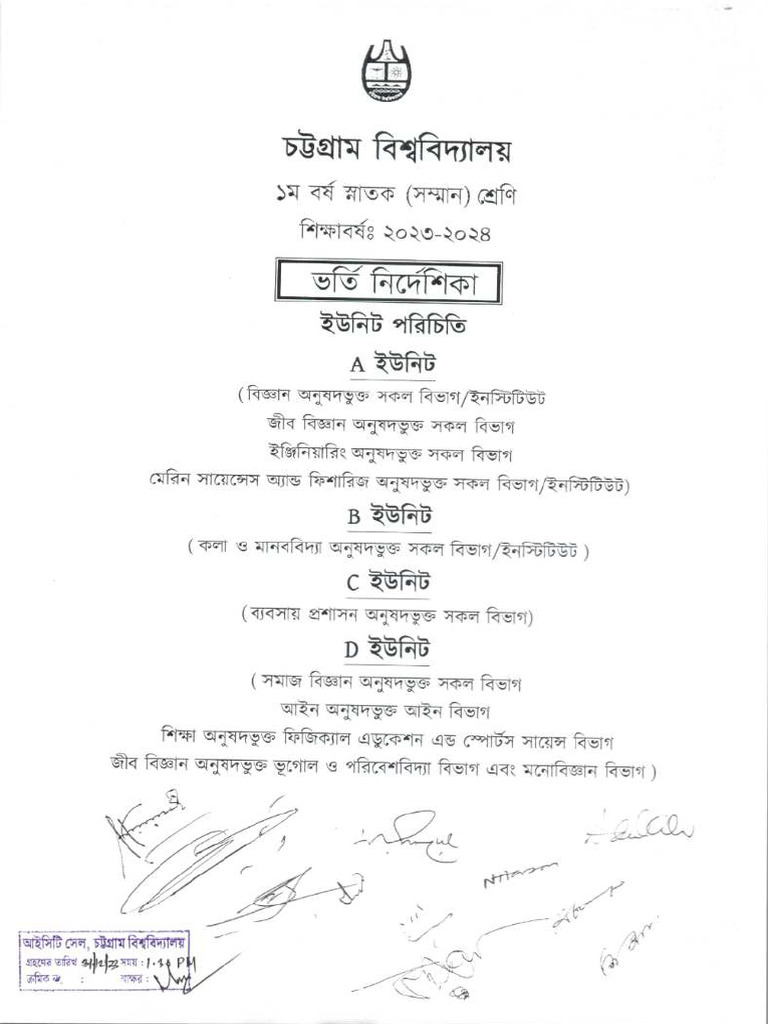 চট্টগ্রাম বিশ্ববিদ্যালয়
১ম বর্ষ স্নাতক (সম্মান) শ্রেণি
শিক্ষাবর্ষঃ ২০২৩-২০২৪
ভর্তি নির্দেশিকা
ইউনিট পরিচিতি
A ইউনিট
( বিজ্ঞান অনুষদভুক্ত সকল বিভাগ/ইনস্টিটিউট
জীব বিজ্ঞান অনুষদভুক্ত সকল বিভাগ
ইঞ্জিনিয়ারিং অনুষদভুক্ত সকল বিভাগ
মেরিন সায়েন্সেস অ্যান্ড ফিশারিজ অনুষদভুক্ত সকল বিভাগ/ইনস্টিটিউট)
B ইউনিট
( কলা ও মানববিদ্যা অনুষদভুক্ত সকল বিভাগ/ইনস্টিটিউট )
C ইউনিট
(ব্যবসায় প্রশাসন অনুষদভুক্ত সকল বিভাগ)
D ইউনিট
( সমাজ বিজ্ঞান অনুষদভুক্ত সকল বিভাগ
আইন অনুষদভুক্ত আইন বিভাগ
শিক্ষা অনুষদভুক্ত ফিজিক্যাল এডুকেশন এন্ড স্পোর্টস সায়েন্স বিভাগ
জীব বিজ্ঞান অনুষদভুক্ত ভূগোল ও পরিবেশবিদ্যা বিভাগ এবং মনোবিজ্ঞান বিভাগ )
আইসিটি সেল, চট্টগ্রাম বিশ্ববিদ্যালয়
গ্রহণের তারিখ সময় :
ক্রমিক নং : স্বাক্ষর :